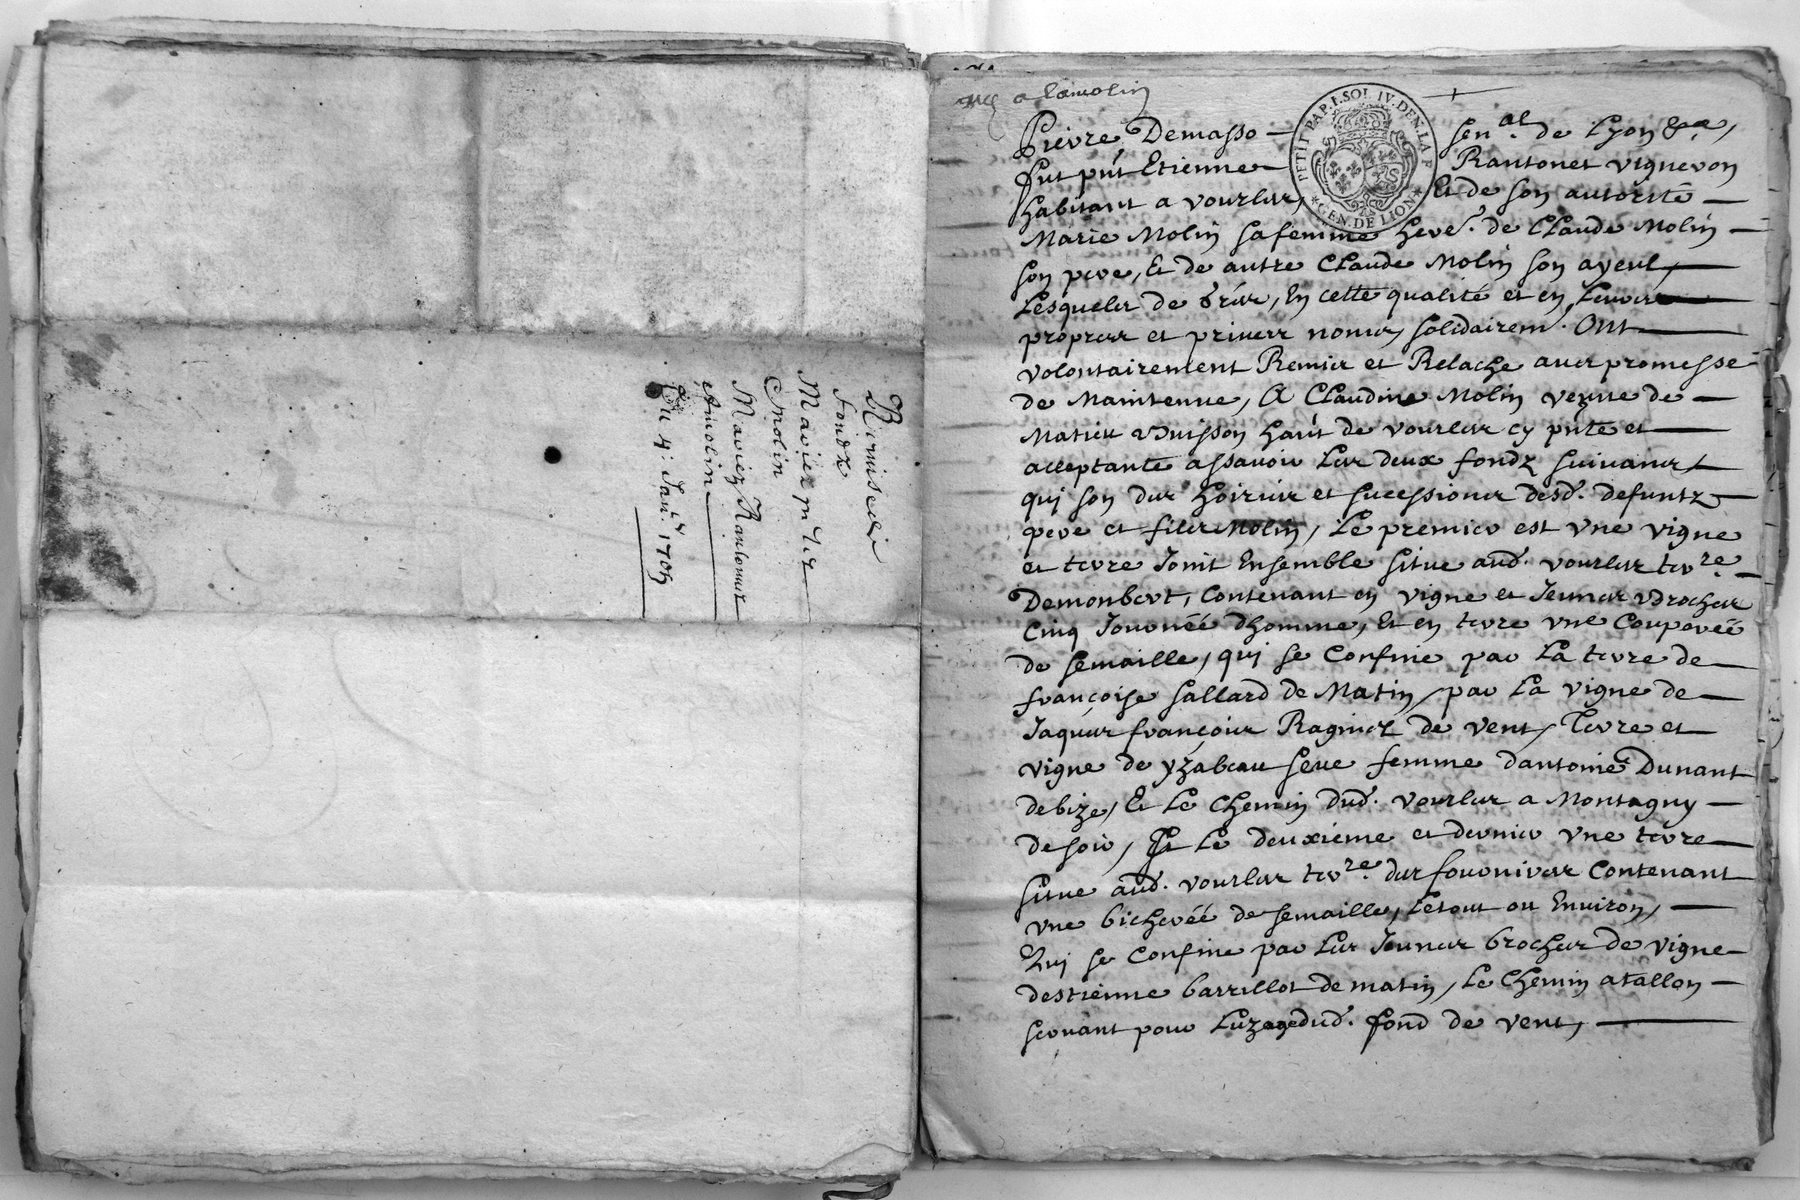 Remise de
fondz
Marie
Molin
Mariez Rantonnet
Amolin
Du 4. Jan.r 1705
a lamolin
PETIT PAP. 1. SOL IV. DEN. LA F
GEN. DE LION
Pierre Demasso — Sen.al de Lyon &a,
fut pnt Etienne Rantonet vigneron
habitant a vourles, Et de son autorité
Marie Molin sa femme here. de Claude Molin
son pere, Et de autre Claude Molin son ayeul,
Lesquels de Gré, En cette qualité et en Leurs
propres et privez noms, solidairemt. Ont
volontairement Remis et Relaché avec promesse
de Maintenue, A Claudine Molin vezue de
Matieu Buisson haut de vourles cy pnte et
acceptante assavoir Les deux fondz suivants,
qui son des hoiries et sucessions desd. defuntz
pere et filz Molin, Le premier est vne vigne
et terre Joint Ensemble situe aud. vourles terre
Demonbert, Contenant en vigne et Jeunes Broches
Cinq Journéé dhomme, Et en terre vne Couperéé
de semaille, qui se Confine par La terre de
françoise sallard de Matin, par La vigne de
Jaques françois Raginel de vent, Terre et
vigne de yzabeau seve femme dantoine Dunant
de bize, Et Le Chemin dud. vourles a Montagny
de soir, Et Le deuxieme et dernier vne terre
situe aud. vourles terre. des fourniers Contenant
vne bicheréé de semaille, Letout ou Environ,
Qui se Confine par Les Jeunes broches de vigne
destienne barrillot de matin, Le Chemin atallon
servant pour Luzagedud. fond de vent,